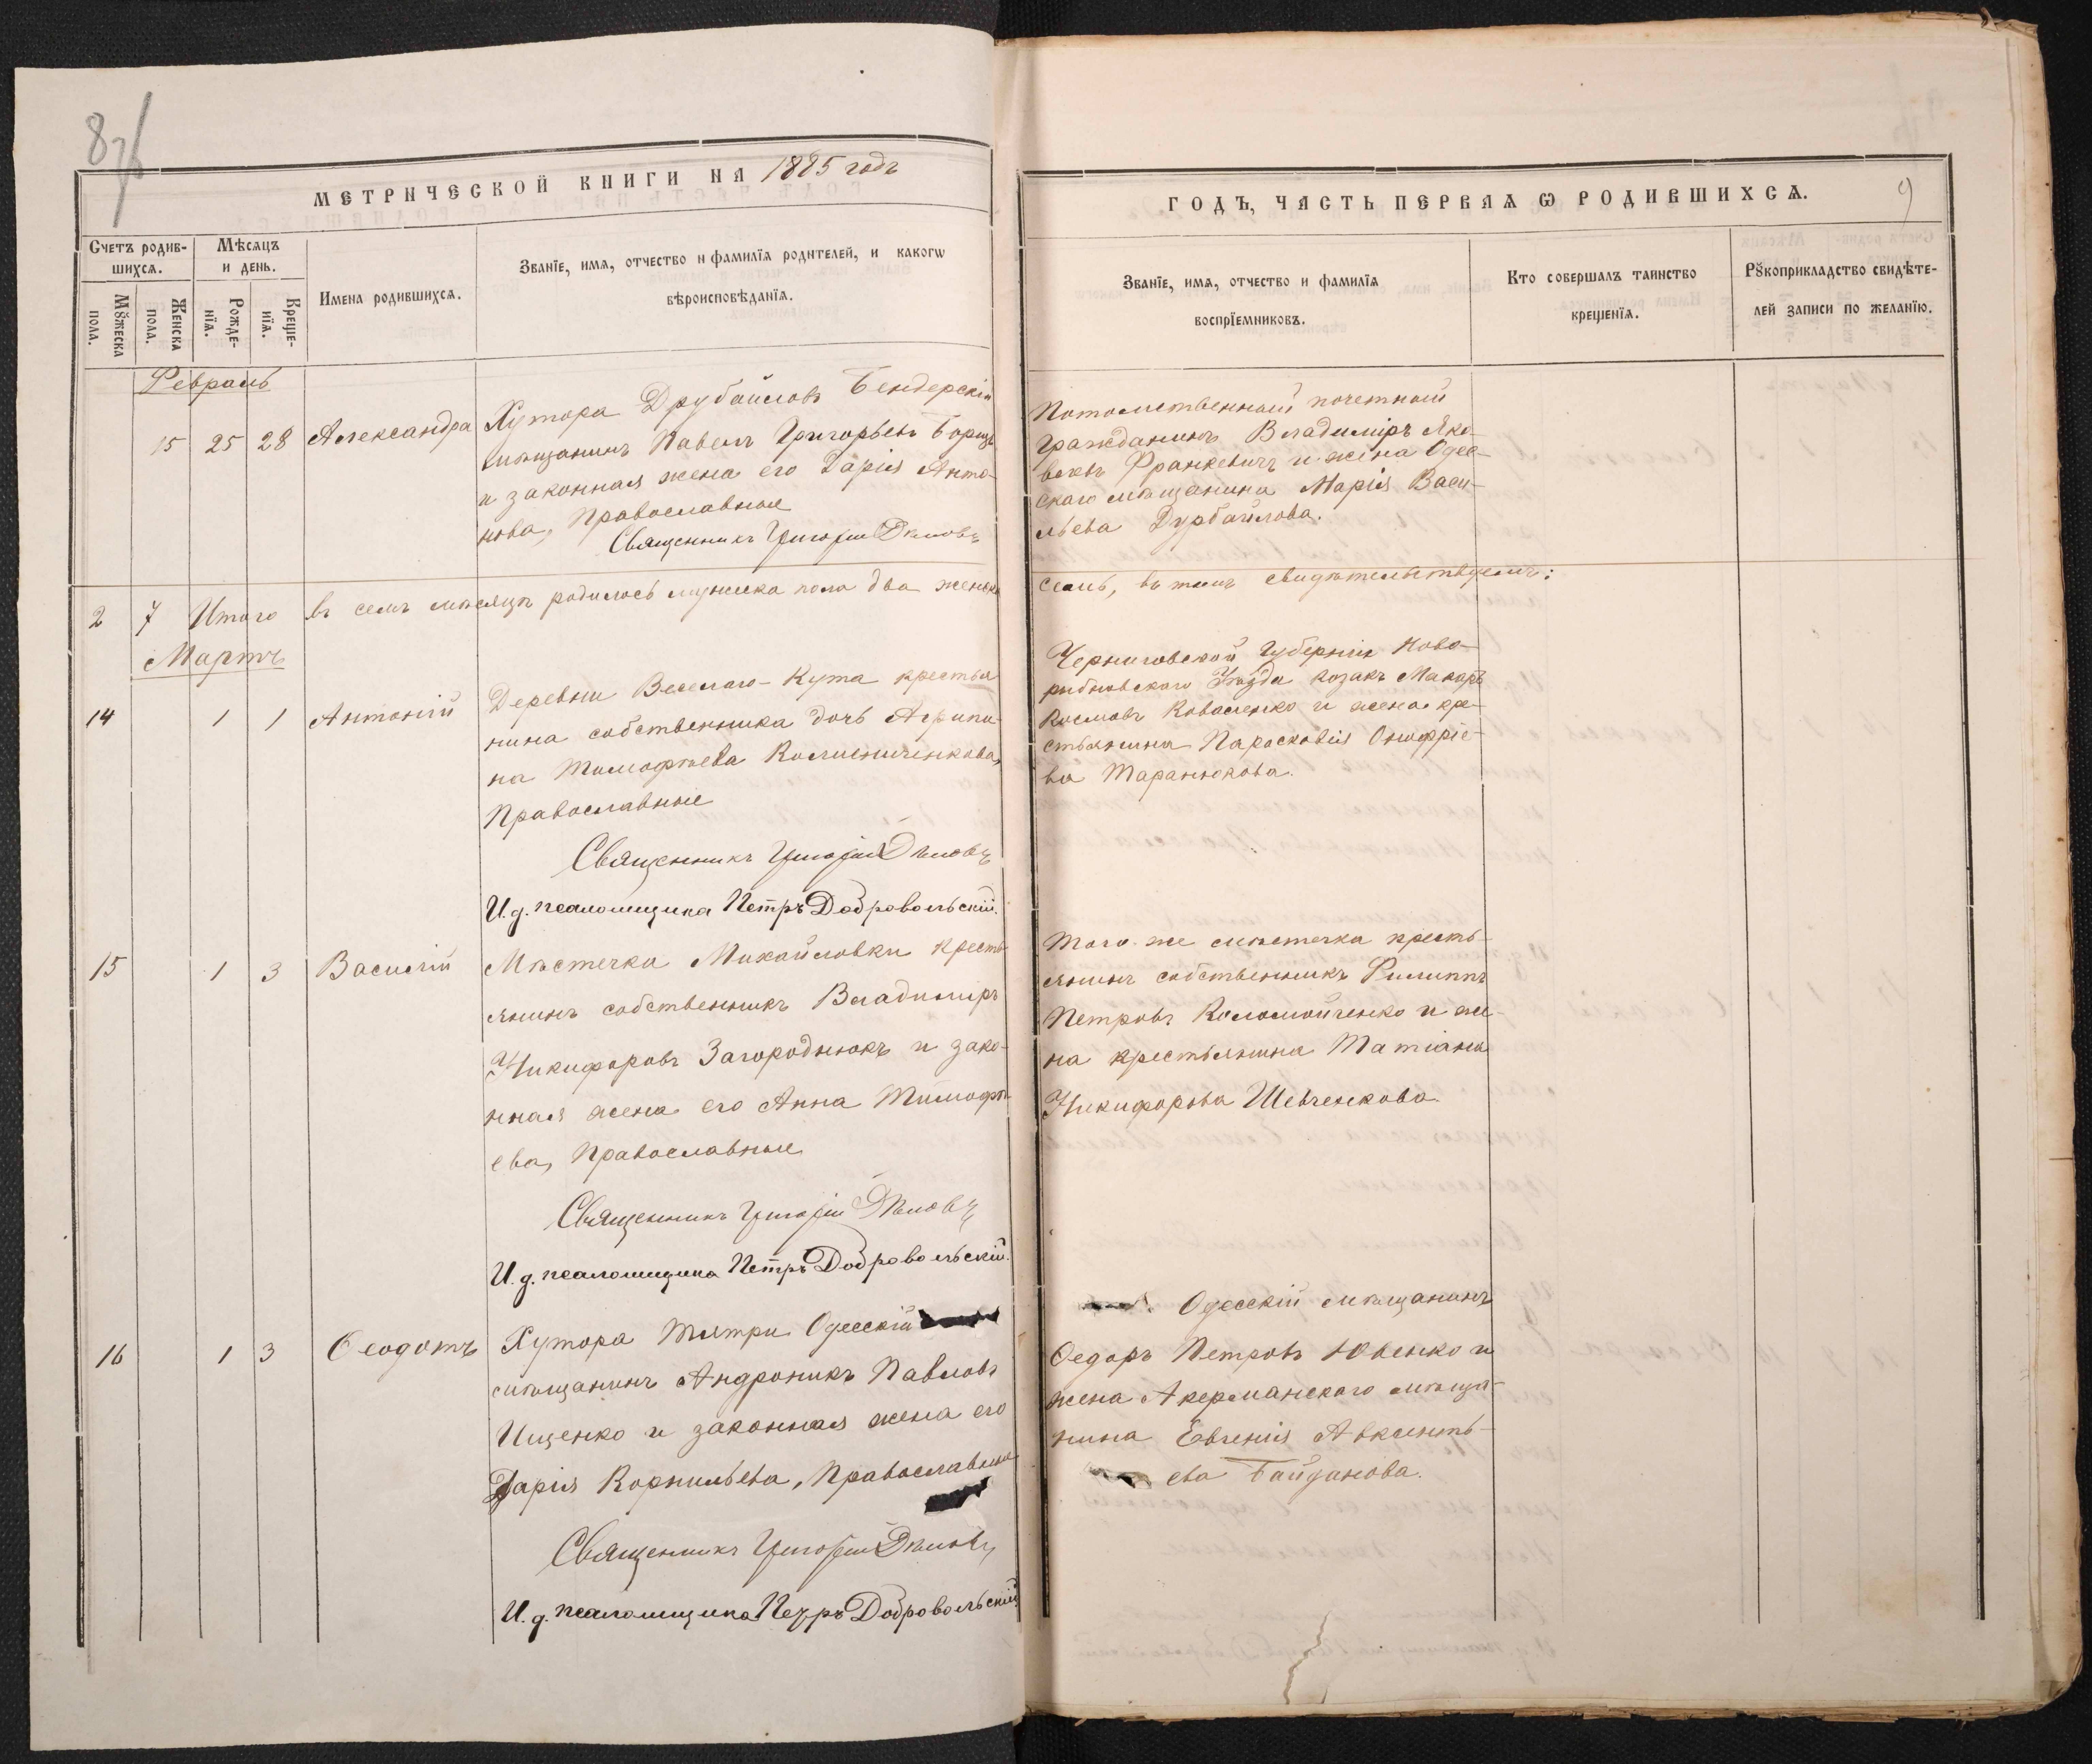 87/
МЕТРИЧЕСКОЙ КНИГИ НА 1885 годъ
Счетъ родив-
шихся.
Мѣсяцъ
и день.
Мꙋжеска
пола.
Женска
пола.
Рожде-
нія.
Креще-
нія.
Имена родившихся.
Званіе, имя, отчество и фамилія родителей, и какогѡ
вѣроисповѣданія.
Февраль
15 25 28 Александра
Хутора Друбайловъ Бендерскій
мѣщанинъ Павелъ Григорьевъ
и законная жена его Дарія Анто-
нова, Православные
Священникъ Григорій
2 7 Итого въ семъ мѣсяцѣ родилось мужска пола два женска
Мартъ
14 1 1 Антоній
Деревни Веселаго-Кута крестья
нина собственника дочь Агрипи-
на Тимофѣева
Православные
Священникъ Григорій
И. д. псаломщика Петръ Добровольскій.
15 1 3 Василій
Мѣстечка Михайловки кресть-
янинъ собственникъ Владиміръ
Никифоровъ Загороднюкъ и зако-
нная жена его Анна Тимофѣ
ева, Православные
Священникъ Григорій
И. д. псаломщика Петръ Добровольскій.
16 1 3 Ѳеодотъ
Хутора Тятри Одесскій
мѣщанинъ Андроникъ Павловъ
Ищенко и законная жена его
Дарія Корнильева, Православные
Священникъ Григорій
И. д. псаломщика Петръ Добровольскій
9
ГОДЪ, ЧАСТЬ ПЕРВАЯ Ѡ РОДИВШИХСЯ.
Званіе, имя, отчество и фамилія
воспріемниковъ.
Кто совершалъ таинство
крещенія.
Рꙋкоприкладство свидѣте-
лей записи по желанію.
Потомственный почетный
гражданинъ Владиміръ Яко-
влевъ Франкевичъ и жена Одес-
скаго мѣщанина Марія Васи-
льева Дурбайлова.
семь, въ томъ свидѣтельствуемъ:
Черниговской Губерніи Ново-
рыбковскаго Уѣзда козакъ Макаръ
Космовъ Коваленко и жена кре-
стьянина Парасковія Онофріе-
ва Таранюкова.
Того-же мѣстечка кресть-
янинъ собственникъ Филиппъ
Петровъ Коломойченко и же-
на крестьянина Татіана
Никифорова Шевченкова.
Одесскій мѣщанинъ
Ѳедоръ Петровъ Ювенко и
жена Акерманскаго мѣща-
нина Евгенія Авксенть-
ева Байданова.